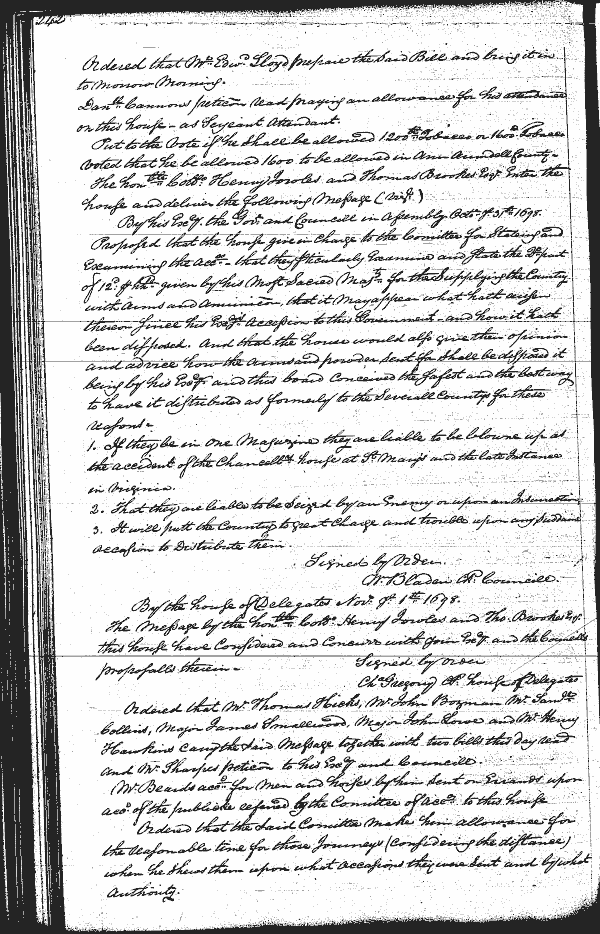 242
Ordered that Mr. Edwd. Lloyd prepare the Said Bill and bring it in
to Morrow Morning.
Danll. Cannons petic̄on read praying an allowance for his attendance
on this house - as Serjeant Attendant.
Put to the Vote if he Shall be allowed 1200 Tobacco or 1600 Tobacco
voted that he be allowed 1600 to be allowed in Ann Arundell County -
The honble. Collo. Henry Jowles and Thomas Brookes Esqr. Enter the
house and deliver the following Message (vizt.)
By his Excy. the Govr. and Councill in Assembly Octr. ye. 31st. 1698.
Proposed that the house give in Charge to the Com̄ittee for Stateing and
Examining the accts. - that they pticularly Examine and State the Depart
of 12d. ⅌ hhd. given by his Most Sacred Maty. for the Supplying the Country
with Arms and Amunic̄on, that it may appear what hath arisen
thereon Since his Excys. Accession to this Government - and how it hath
been disposed. And that the house would also give their opinion
and advice how the arms and powder Sent for Shall be disposed it
being by his Excy. and this board Conceived the Safest and the best way
to have it distributed as formerly to the Severall Countys for these
reasons -
1. If they be in One Magazine they are liable to be blowne up as
the accident of the Chancellrs. house at St. Marys and the late Instance
in Virginia.
2. That they are liable to be Seized by an Enemy or upon an Insurrection
3. It will putt the Country to great Charge and trouble upon any Suddaine
occasion to Distribute them.
Signed by Order.
W. Bladen Cl. Councill.
By the house of Delegates Novr. ye. 1st. 1698.
The Message by the honble. Collo. Henry Jowles and Tho. Brookes Esqr.
this house have Considered and Concurr with his Excy. and the Councills
proposalls therein -
Signed by order
Chr. Gregory Cl. house of Delegates
Ordered that Mr. Thomas Hicks, Mr. John Bozman Mr. Samll.
Collins, Major James Smallwood, Major John Lowe and Mr. Henry
Hawkins carry the Said Message together with two bills this day read
and Mr. Sharpes petic̄on to his Excy. and Councill.
Mr. Beards acco. for Men and horses by him Sent on Errands upon
acco. of the publicke refered by the Com̄ittee of accts. to this house
Ordered that the Said Com̄ittee make him allowance for
the reasonable time for those Journeys (Considering the distance)
when he Shews them upon what occasions they were Sent and by what
Authority.